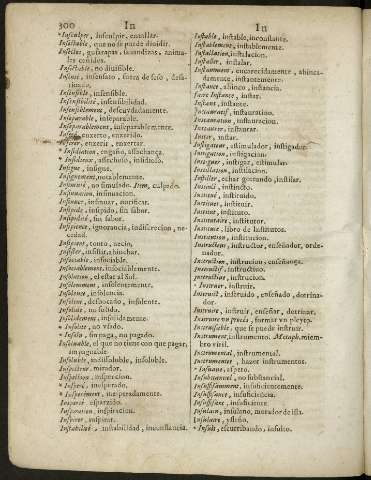 300 In
* Insculper, insculpir, entallar.
Insectable, que no se puede dividir.
Insectes, gusarapas, sauandijas, anima-
les ceñidos.
Insectable, no diuisible.
Insensé, insensato, fuera de seso, desa-
tinado.
Insensible, insensible.
Insensibilité, insensibilidad.
Insensiblement, descuydadamente.
Inseparable, inseparable.
Inseparablement, inseparablemente.
enxerto, enxerido.
enxerir, enxertar.
* Insidiation, engaño, assechança.
* Insidieux, assechoso, insidioso.
Insigne, insigne.
Insignement, notablemente.
Insimulé, no simulado. Item, culpado.
Insinuation, insinuacion.
Insinuer, insinuar, notificar.
Insipide, insipido, sin sabor.
Insipidité, sin sabor.
Insipience, ignorancia, indiscrecion, ne-
cedad.
Insipient, tonto, necio.
Insister, insistir, ahinchar.
Insociable, insociable.
Insociablement, insociablemente.
Insolation, el estar al Sol.
Insolemment, insolentemente.
Insolence, insolencia.
Insolent, desbocado, insolente.
Insolide, no solido.
Insolidement, insolidamente.
* Insolite, no vsado.
* Insolu, sin paga, no pagado.
Insoluable, el que no tiene con que pagar,
impagable
Insoluble, indissoluble, insoluble.
Inspecteur, mirador.
Inspection, inspeccion.
* Inesperé, inesperado.
* Insperément, inesperadamente.
Inspersé, esparzido.
Inspiration, inspiracion.
Inspirer, inspirar.
Instabilité, instabilidad, inconstancia.
In
Instable, instable, inconstante.
Instablement, instablemente.
Installation, instalacion.
Instaler, instalar.
Instamment, encarecidamente, ahinca-
damente, instantemente.
Instance, ahinco, instancia.
Faire Instance, instar.
Instant, instante.
Instauratif, instauratiuo.
Instauration, instauracion.
Instaurer, instaurar.
Inster, instar.
Instigateur, estimulador, instigador.
Instigation, instigacion.
Instiguer, instigar, estimular.
Instillation, instilacion.
Instiller, echar goteando, instilar.
Instinct, instincto.
Institué, instituido.
Instituer, instituir.
Institut, instituto.
Instituteur, institutor.
Institute, libro de Institutos.
Institution, institucion.
Instructeur, instructor, enseñador, orde-
nador.
Instruction, instrucion, enseñança.
Instructif, instructiuo.
Instruction, instrucion.
* Instruer, instruir.
Instruit, instruido, enseñado, dotrina-
dor.
Instruire, instruir, enseñar, dotrinar.
Instruire vn procés, formar vn pleyto.
Instruisable, que se puede instruir.
Instrument, instrumento. Metaph. miem-
bro viril.
Instrumental, instrumental.
Instrumenter, hazer instrumentos.
* Insuaue, aspero.
Substantiel, no substancial.
Insuffisamment, insuficientemente.
Insuffisance, insuficiencia.
Insuffisant, insuficiente.
Insulain, insulano, morador de isla.
Insulaire, ysleño.
* Insult, escarribando, insulto.